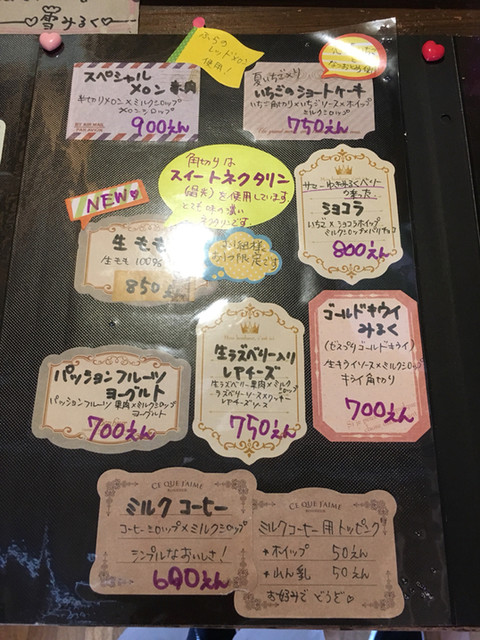 雪みるく
ふらの
レッドメロン
使用!
スペシャル
メロン 果肉
半切りメロン×ミルクシロップ
メロンシロップ
900えん
夏いちご入り
いちごのショートケーキ
いちご角切り×いちごソース×ホイップ
ミルクシロップ
750えん
角切りは
スイートネクタリン
を使用しています
とても味の濃い
ネクタリンです
NEW♡
生もも
生もも100%
850えん
お1つ限定です
ショコラ
いちご×ショコラホイップ
ミルクシロップ×パリチョコ
800えん
パッションフルーツ
ヨーグルト
パッションフルーツ果肉×ミルクシロップ
ヨーグルト
700えん
生ラズベリー入り
レアチーズ
生ラズベリー果肉×ミルク
ラズベリーソース×クッキー
レアチーズソース
750えん
ゴールドキウイ
みるく
(ゼスプリゴールドキウイ)
生キウイソース×ミルクシロップ
キウイ角切り
700えん
CE QUE J'AIME
ミルクコーヒー
コーヒーシロップ×ミルクシロップ
シンプルなおいしさ!
600えん
CE QUE J'AIME
ミルクコーヒー用トッピング
*ホイップ 50えん
*れん乳 50えん
お好みでどうぞ♡